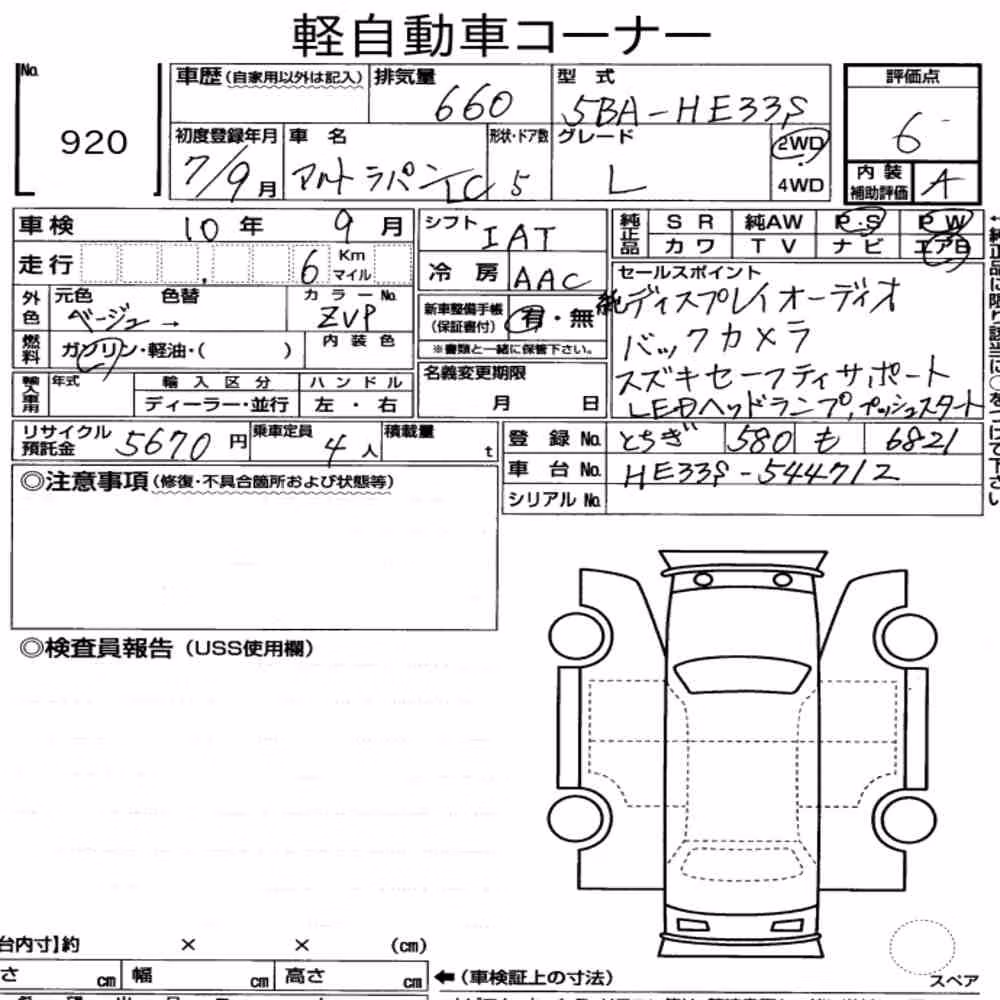 軽自動車コーナー
No. 920
車歴(自家用以外は記入)
排気量 660
型式 5BA-HE33S
評価点 6
初度登録年月 7/9月
車名 アルトラパンLC
形状・ドア数 5
グレード L
2WD
4WD
内装補助評価 A
車検 10年 9月
シフト IAT
純正品 SR 純AW P・S P.W
カワ TV ナビ エアB
走行 6 Km マイル
冷房 AAC
セールスポイント
純ディスプレイオーディオ
バックカメラ
スズキセーフティサポート
LEDヘッドランプ,プッシュスタート
外色 元色 ベージュ→ 色替
カラーNo. ZVP
新車整備手帳(保証書付) 有・無
※書類と一緒に保管下さい。
燃料 ガソリン・軽油・( )
内装色
名義変更期限
月 日
輸入車用 年式
輸入区分 ハンドル
ディーラー・並行 左・右
リサイクル預託金 5670円
乗車定員 4人
積載量 t
登録No. とちぎ 580 も 6821
車台No. HE33S-544712
シリアルNo.
◎注意事項(修復・不具合箇所および状態等)
◎検査員報告(USS使用欄)
台内寸】約 × × (cm)
さ cm 幅 cm 高さ cm
←(車検証上の寸法)
スペア